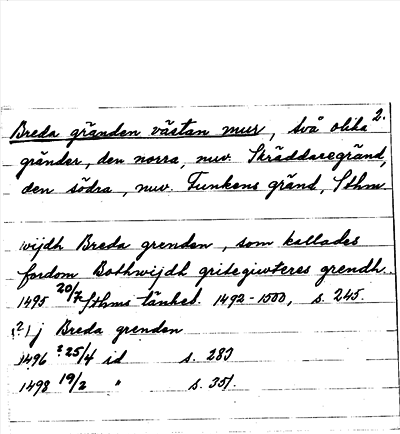 2.
Breda gränden västan mur, två olika
gränder, den norra, nuv. Skräddaregränd,
den södra, nuv. Funkens gränd, Sthm
wijdh Breda grenden, som kallades
fordom Bothwijdh gritegiwteres grendh.
1495 20/7 Sthms tänkeb. 1492-1500, s. 245.
(?) j Breda grenden
1496 ? 25/4 id s. 283
1498 19/2 " s. 351.